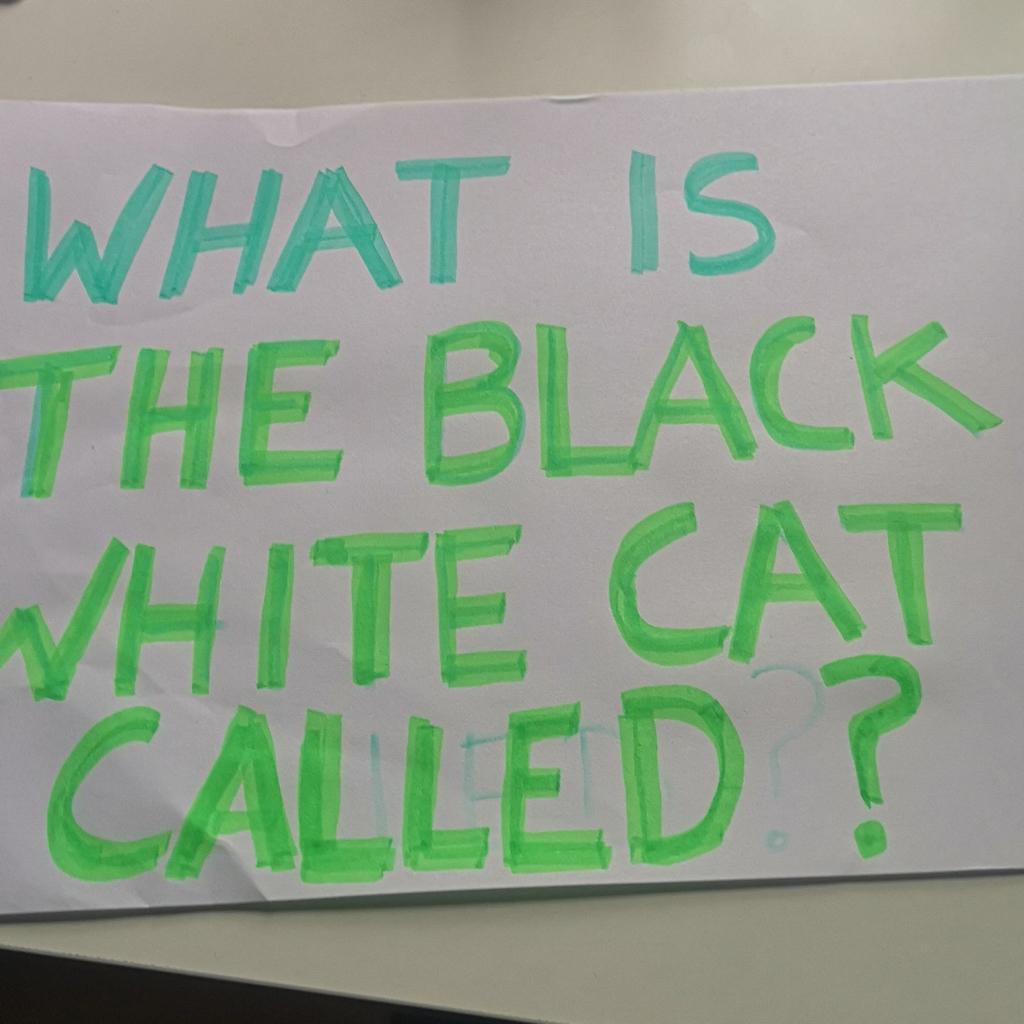 WHAT IS
THE BLACK
WHITE CAT
CALLED?